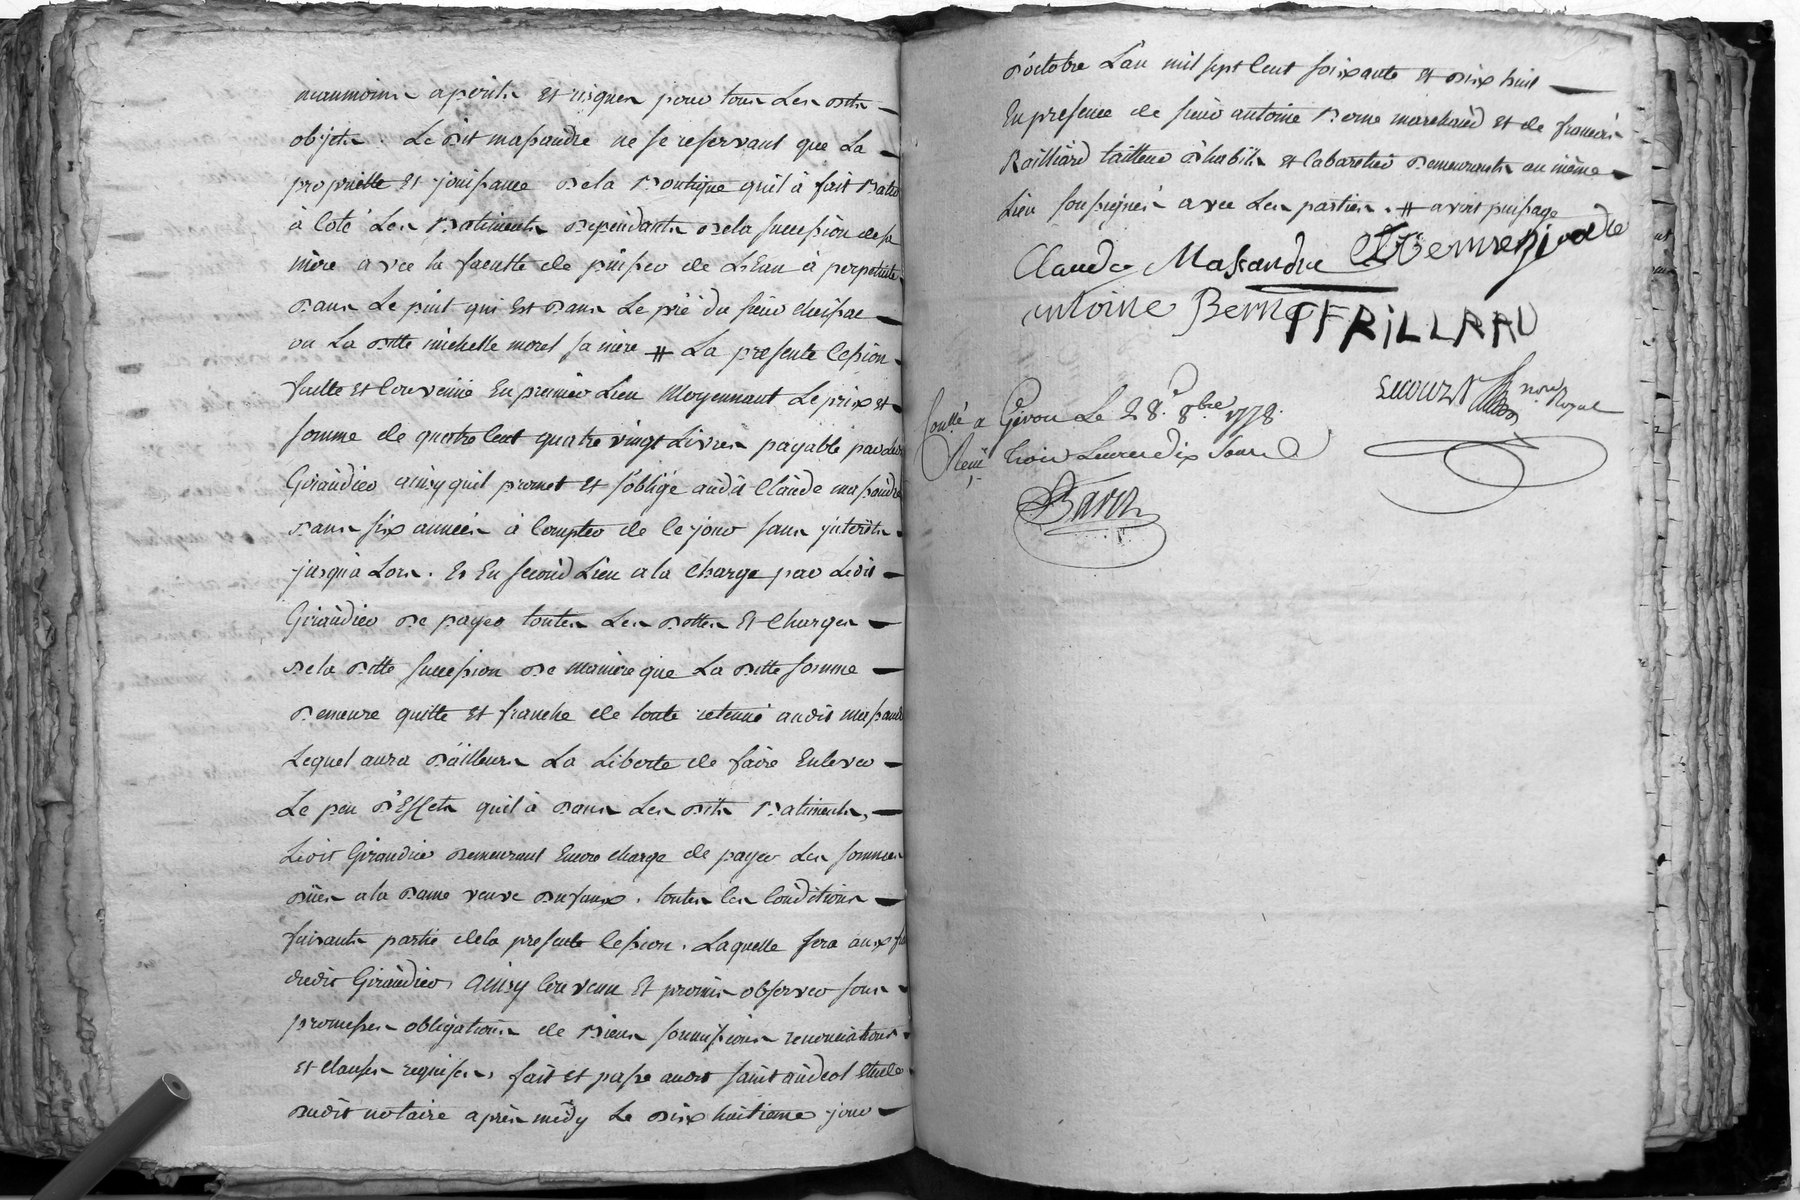 neanmoins a perils et risques pour tous les dits
objets. Le dit massandre ne se reservant que La
proprieté et jouissance de la Boutique qu'il à fait Batir
à coté des Batiments dependants de la succession de sa
mère avec la faculté de puiser de L'Eau à perpetuité
dans Le puit qui Est dans Le pré du sieur
ou La ditte michelle morel sa mère # La presente cession
faitte et convenüe En premier Lieu Moyennant Le prix et
somme de quatre cent quatre vingt Livres payable par Ledit
Girandier ainsy quil promet et s'oblige audit Claude massandre
dans six années à compter de ce jour sans interets
jusqu'a Lors. Et En second Lieu a la charge par Ledit
Girandier de payer toutes Les dettes Et charges
de la ditte succession de manière que La ditte somme
demeure quitte et franche de toute retenüe audit massandre
Lequel aura d'ailleurs La Liberté de faire Enlever
Le peu d'Effets quil à dans Les dits Batiments,
Ledit Girandier demeurant Encore chargé de payer Les sommes
düës a la dame veuve dufaux. toutes les conditions
faisants partie de la presente cession. Laquelle sera aux
dudit Girandier, ainsy convenu Et promis observer sous
promesses obligations de Biens soumissions renonciations
et clauses requises, fait et passé audit saint andeol Etude
dudit notaire après midy Le dix huitieme jour
d'octobre L'an mil sept cent soixante et dix huit
En presence de sieur antoine Berne marchand et de francois
Railliard tailleur d'habits et Cabaretier demeurants au même
Lieu soussignés avec Les parties. # avoit puisage
Claude Masandre
antoine Berne FRILLRAD
secourt nore Royal
Conllé a Givors Le 28e 8bre 1778.
Reçu trois Livres dix sous